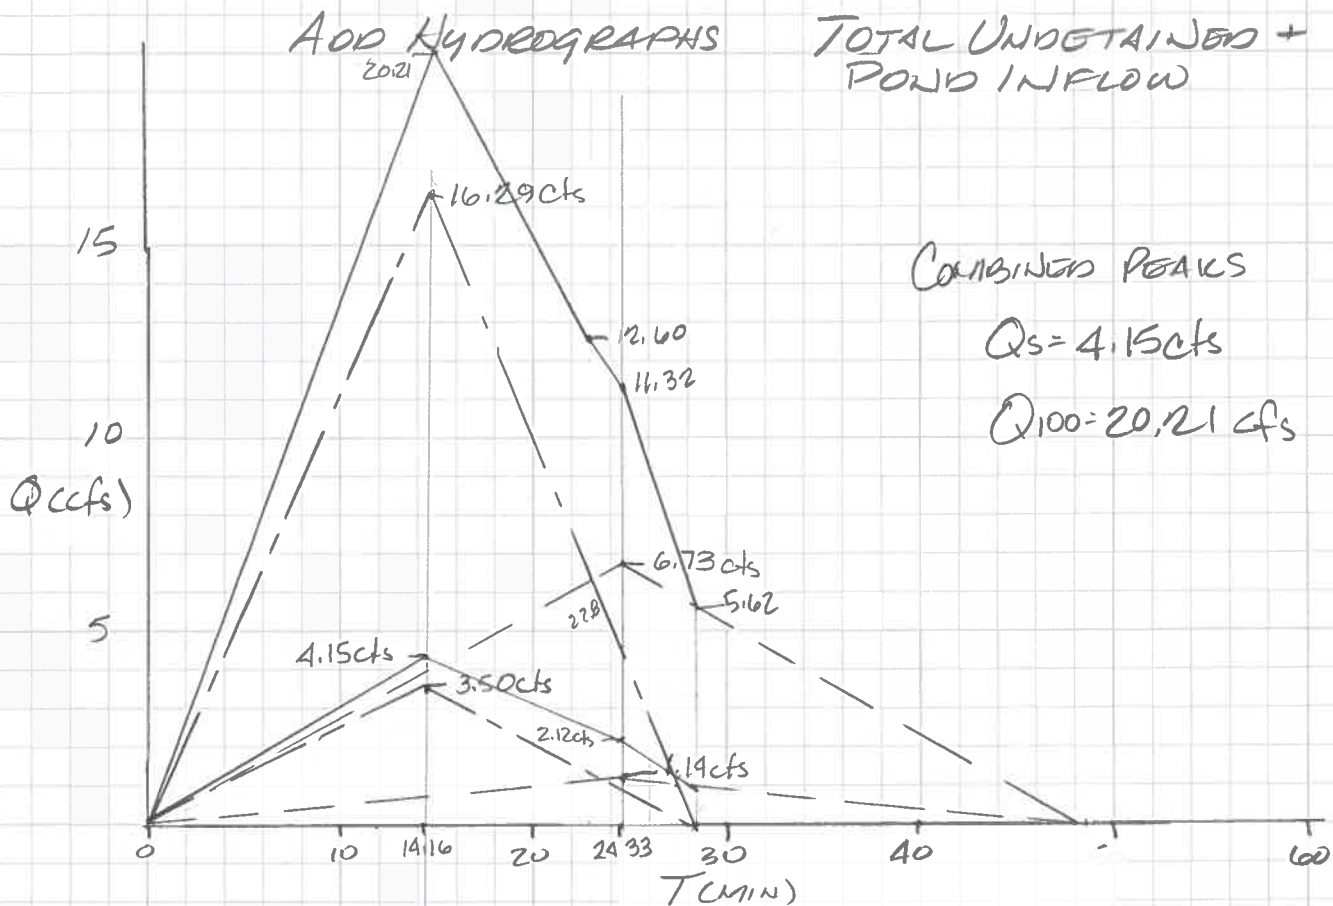 ADD HYDROGRAPHS
TOTAL UNDETAINED +
POND INFLOW
20.21
16.29 cfs
15
COMBINED PEAKS
Q5 = 4.15 cfs
12.60
11.32
Q100 = 20.21 cfs
10
Q (cfs)
6.73 cfs
5.62
5
4.15 cfs
3.50 cfs
2.12 cfs
.14 cfs
0 10 14.16 20 24.33 30 40 60
T (MIN)